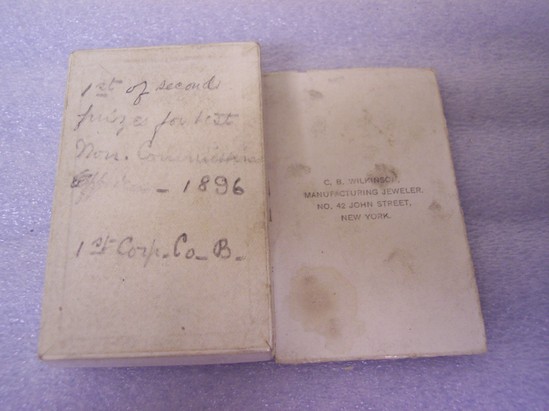 1st of seconds
prizes for best
Non. Commission
Officer - 1896
1st Corp. Co - B -
C. B. WILKINSON,
MANUFACTURING JEWELER,
NO. 42 JOHN STREET,
NEW YORK.